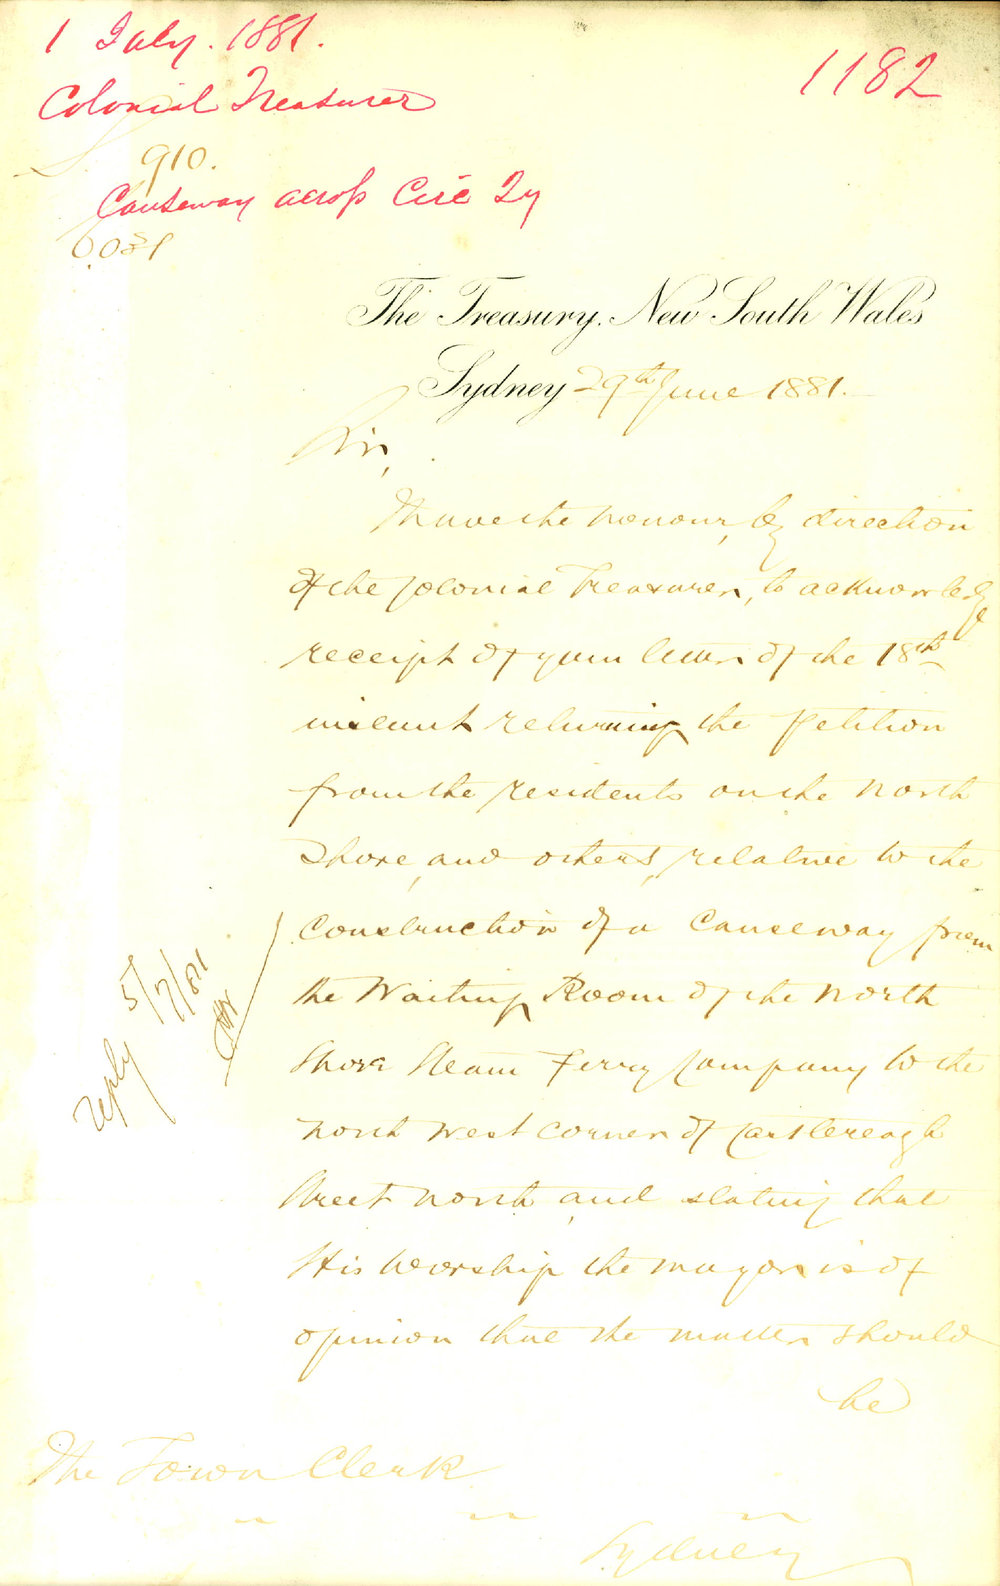 1 July. 1881.
1182
Colonial Treasurer
910.
Causeway across Circ Qy
The Treasury, New South Wales
Sydney 29th June 1881.
Sir,
I have the honour, by direction
of the Colonial Treasurer, to acknowledge
receipt of your letter of the 18th
instant returning the Petition
from the residents on the North
Shore, and others, relative to the
Construction of a Causeway from
the Waiting Room of the North
Shore Steam Ferry Company to the
North West Corner of Castlereagh
Street North, and stating that
His Worship the Mayor is of
opinion that the matter should
be
reply 5/7/81
The Town Clerk
Sydney